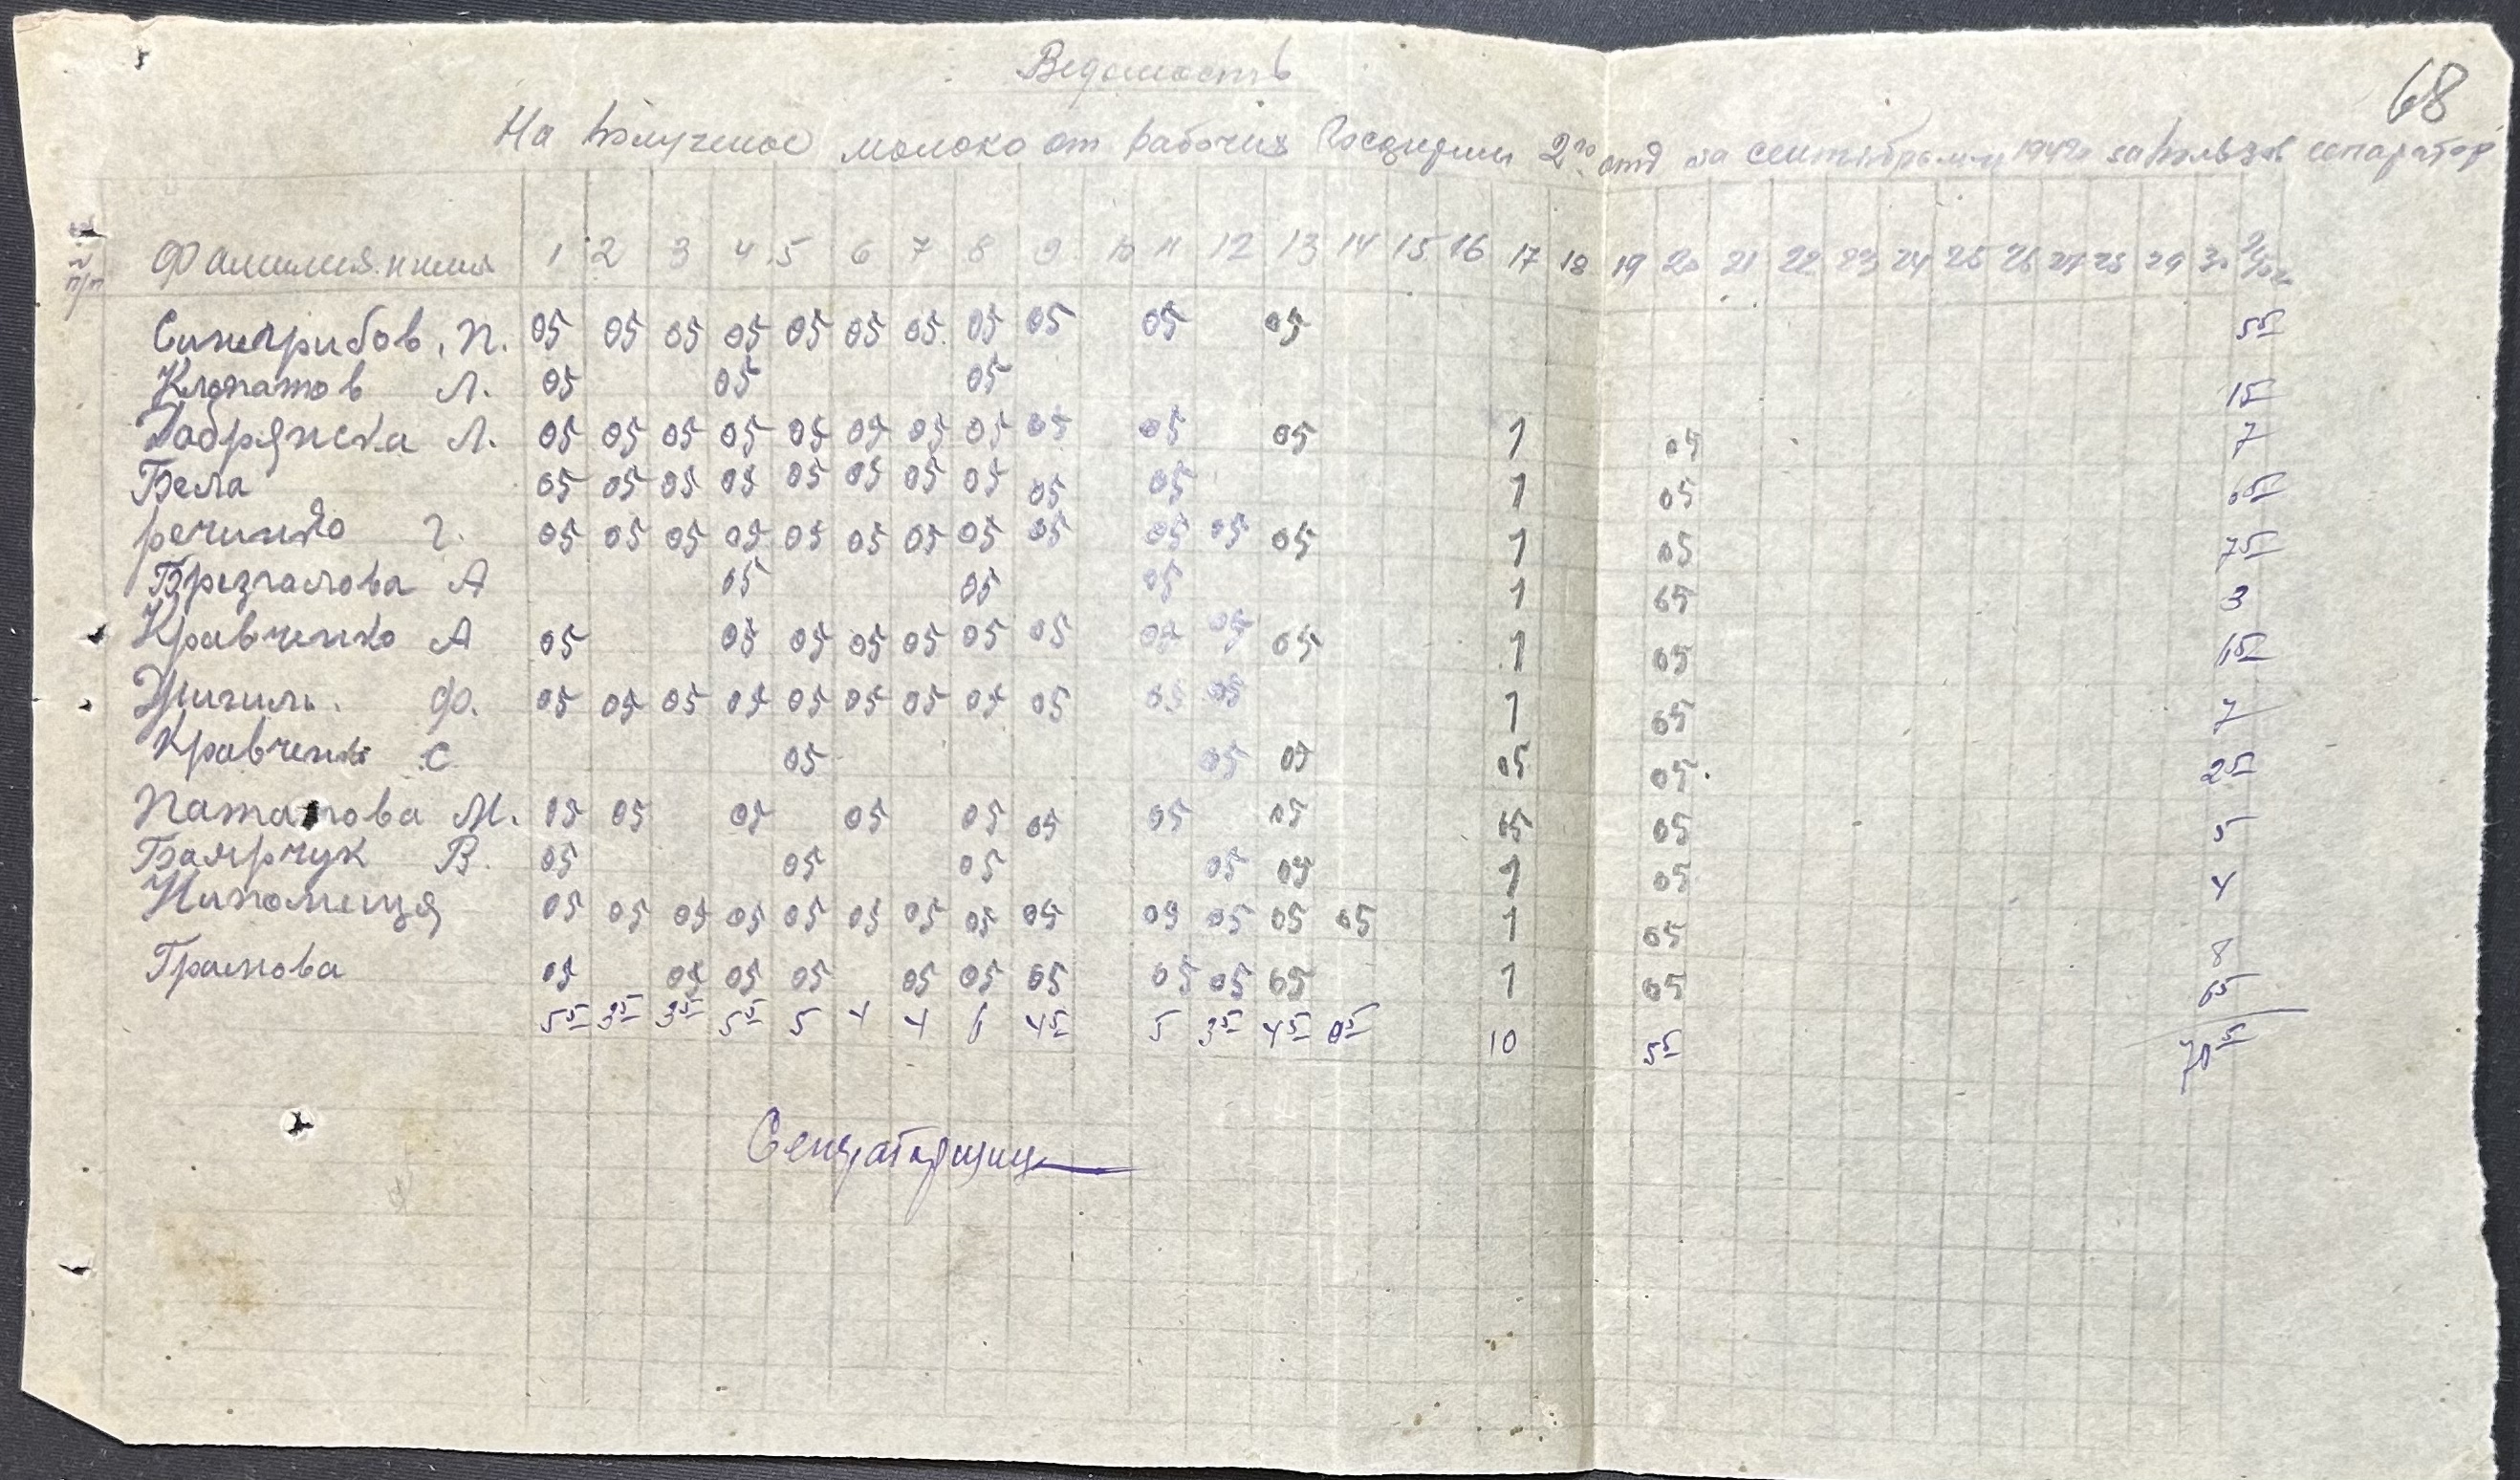 68
Ведомость
На получено молоко от рабочих Госцидии 2го отд за сентябрь м-ц 1942 за пользов сепаратор
№ п/п Фамилия и имя 1 2 3 4 5 6 7 8 9 10 11 12 13 14 15 16 17 18 19 20 21 22 23 24 25 26 27 28 29 30
Синегрибов, П. 05 05 05 05 05 05 05 05 05 05 05 5 5
Клопатов Л. 05 05 05 1 5
Добрянска Л. 05 05 05 05 05 05 05 05 05 05 05 1 05 7
Бела 05 05 05 05 05 05 05 05 05 05 1 05 6 5
речинко Г. 05 05 05 05 05 05 05 05 05 05 05 05 1 05 7 5
Брезгалова А 05 05 05 1 05 3
Кравченко А 05 05 05 05 05 05 05 05 05 05 1 05 6 5
Ф. 05 05 05 05 05 05 05 05 05 05 05 1 05 7
Кравченко С 05 05 05 05 05 2 5
Паталова М. 05 05 05 05 05 05 05 05 05 05 5
Баярчук В. 05 05 05 05 05 1 05 4
05 05 05 05 05 05 05 05 05 05 05 05 05 1 05 8
Грамова 05 05 05 05 05 05 05 05 05 05 1 05 6 5
5 5 3 5 3 5 5 5 5 4 4 6 4 5 5 3 5 4 5 0 5 10 5 5 70 5
Сепараторщиц